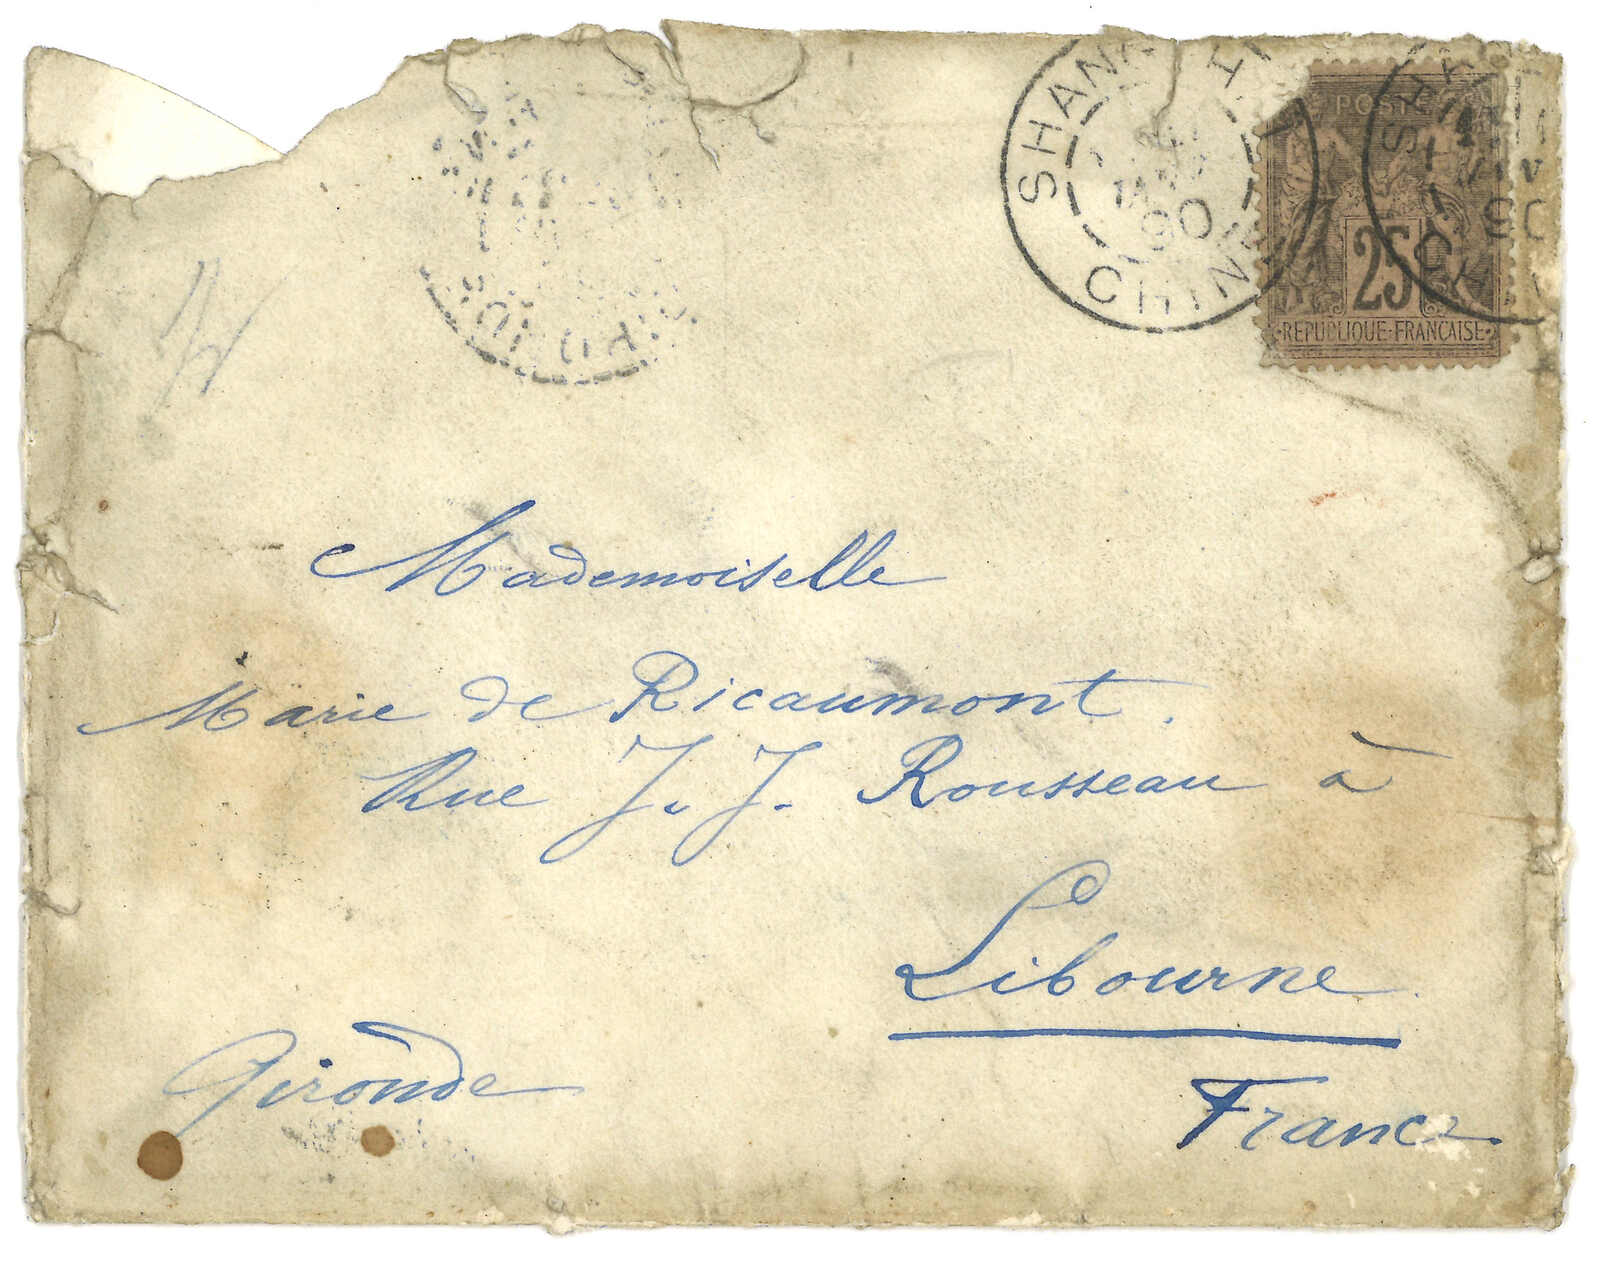 SHANG HAI
CHINE
JANV
90
POSTES
25
REPUBLIQUE·FRANCAISE
CHINE
90
Mademoiselle
Marie de Ricaumont.
Rue J. J. Rousseau à
Libourne
Gironde
France